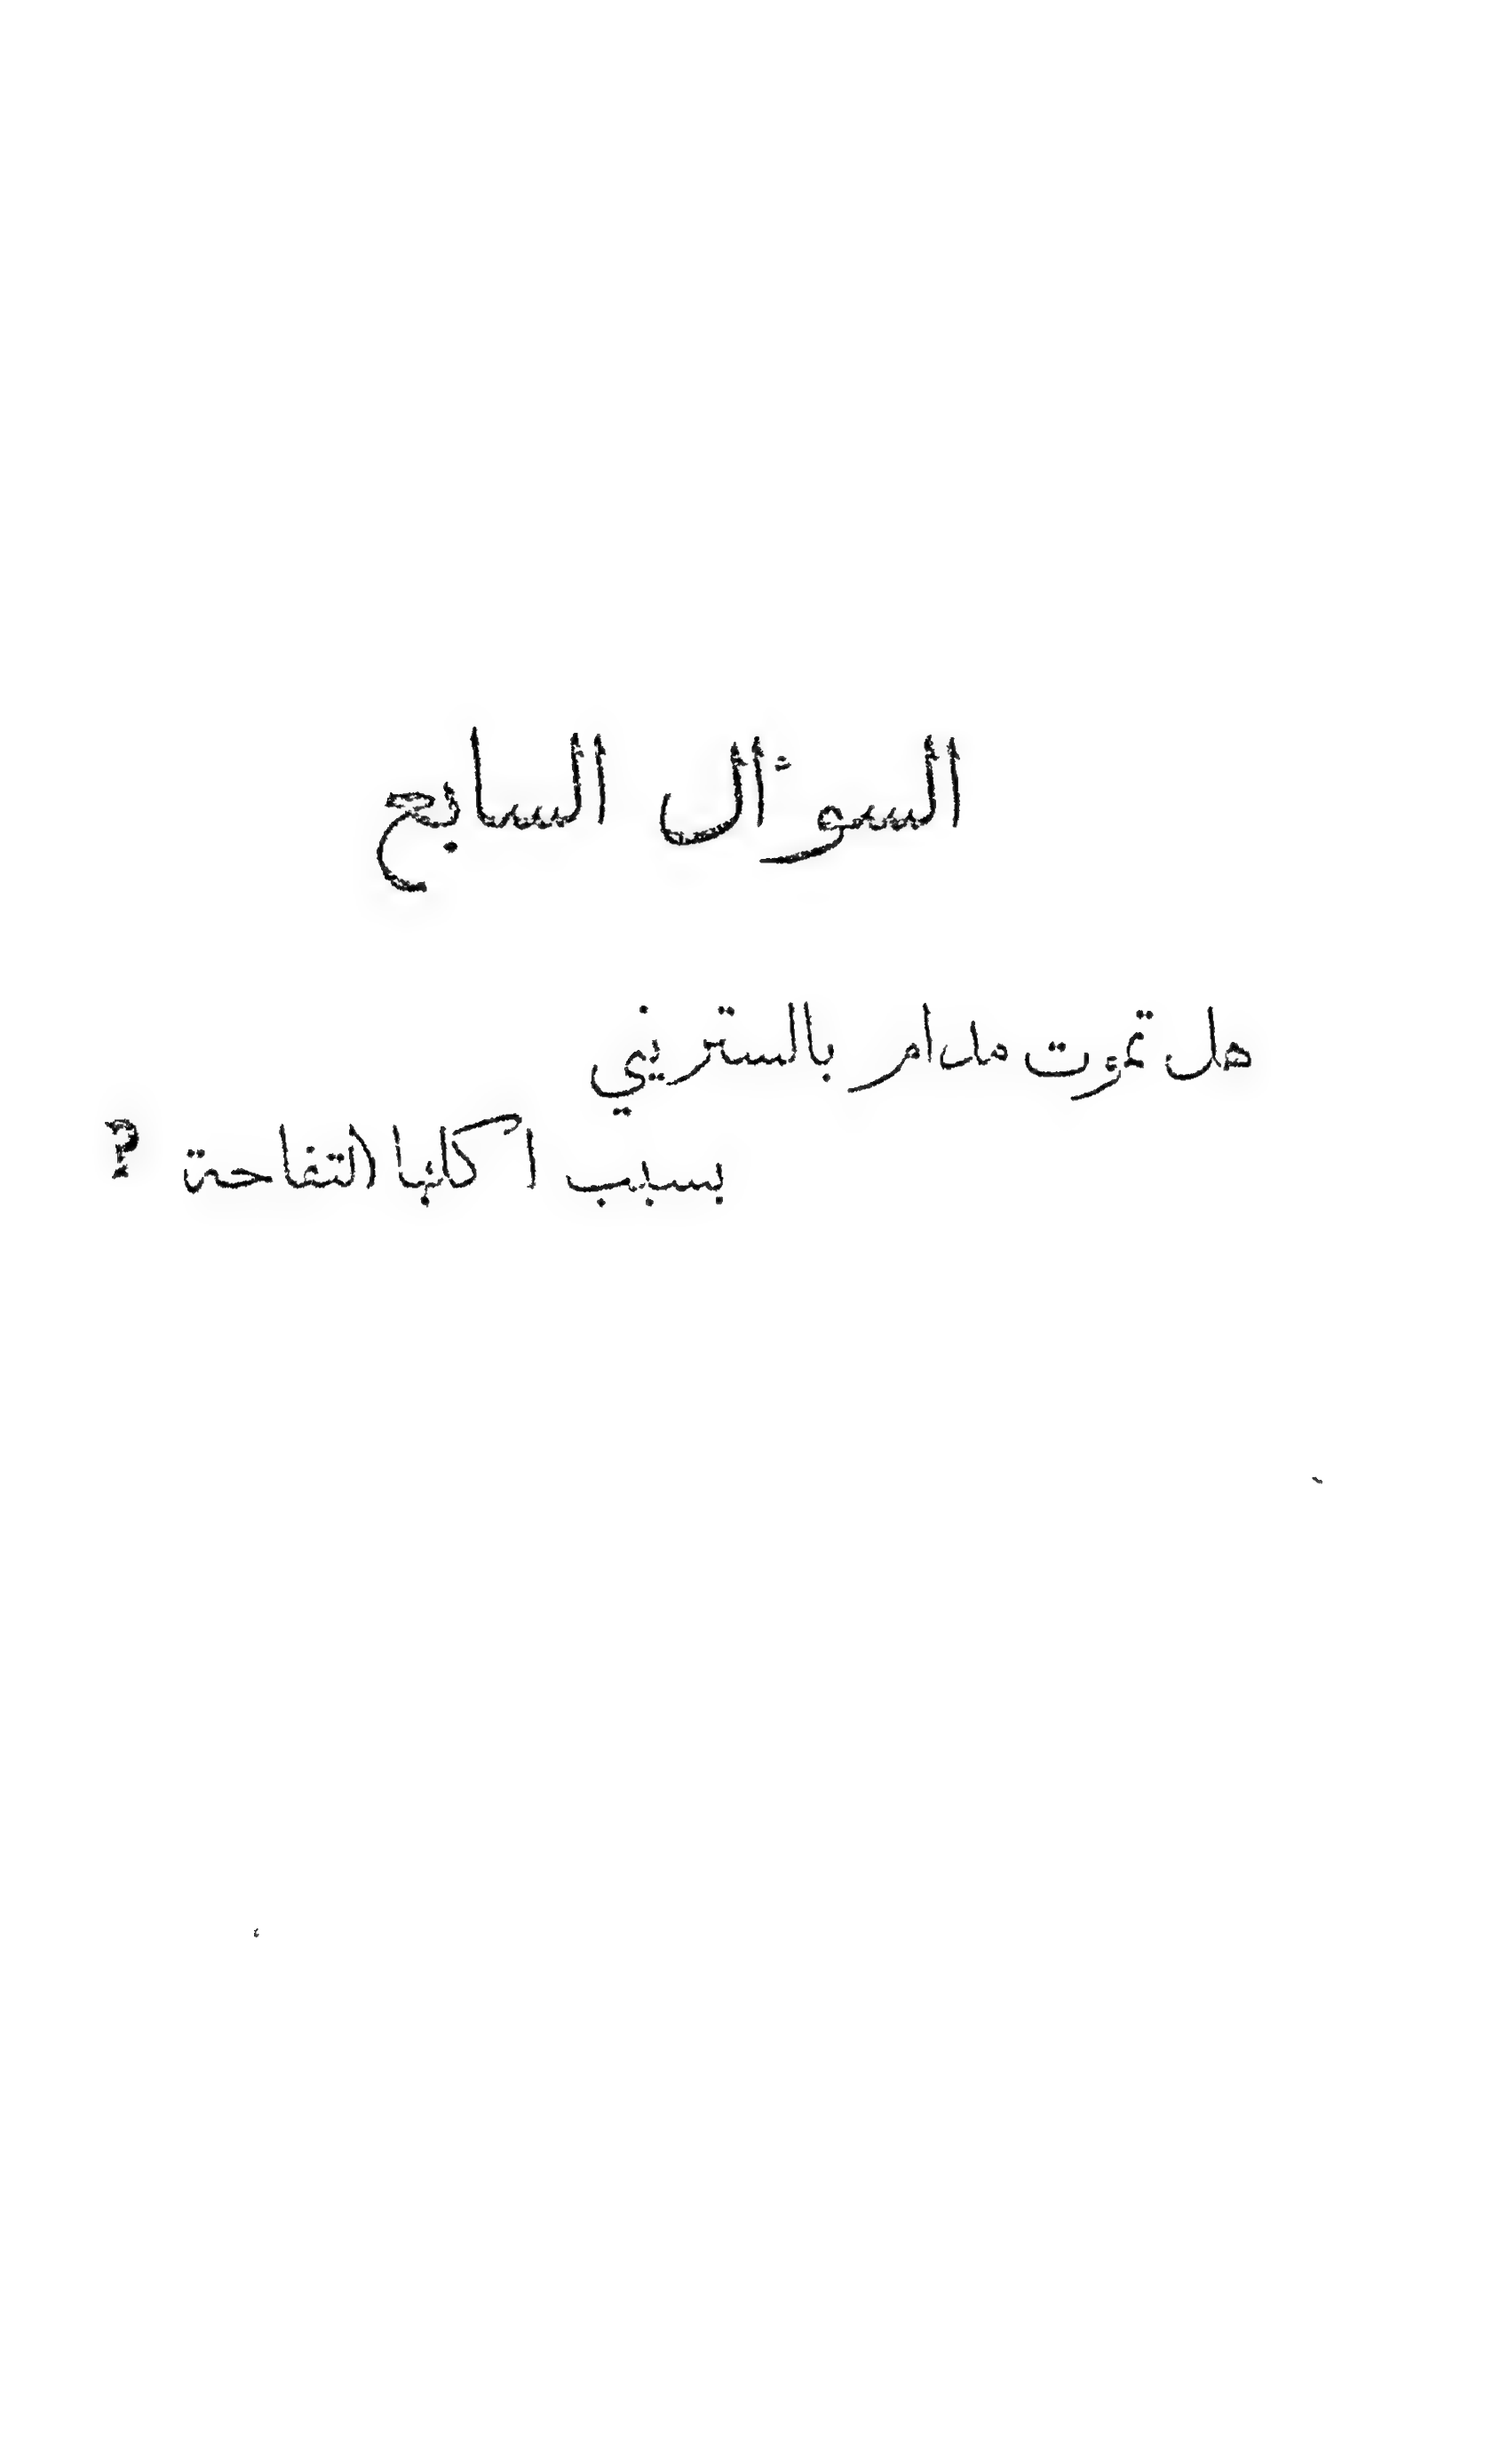 السوءال السابع
هل تموت مدام بالستريني
بسبب اكلها التفاحة ?